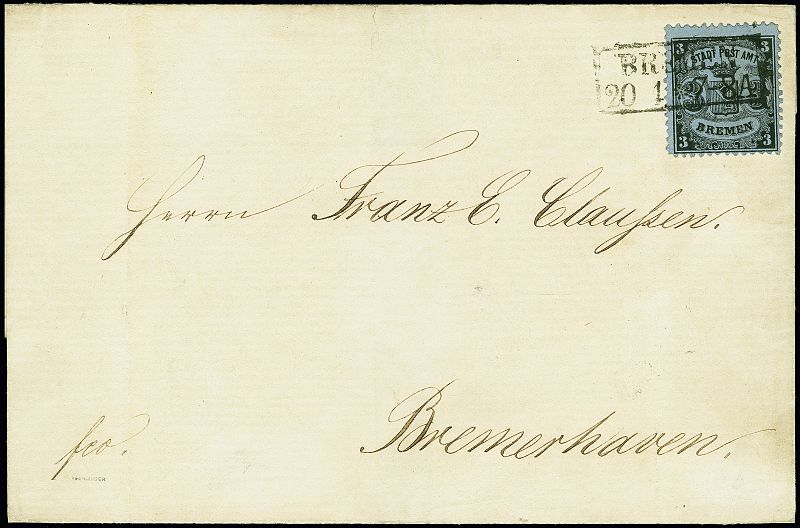 3 3
STADT POST AMT
BREMEN
20 1 8A
BREMEN
3 3
Herrn Franz E. Claußen.
Bremerhaven.
fco.